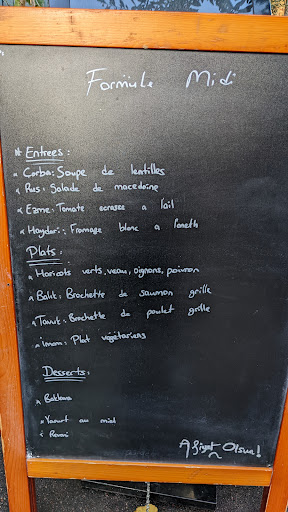 Formule Midi
* Entrees :
* Çorba: Soupe de lentilles
* Rus: Salade de macedoine
* Ezme: Tomate ecrasee a l'ail
* Haydari: Fromage blanc a l'aneth
Plats :
* Haricots verts, veau, oignons, poivron
* Balik: Brochette de saumon grille
* Tavuk: Brochette de poulet grille
* imam: Plat végétariens
Desserts :
* Baklava
* Yaourt au miel
* Revani
Afiyet Olsun!